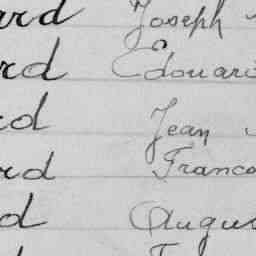 ard Joseph
rd Edouard
rd Jean
rd Franco
d Augus